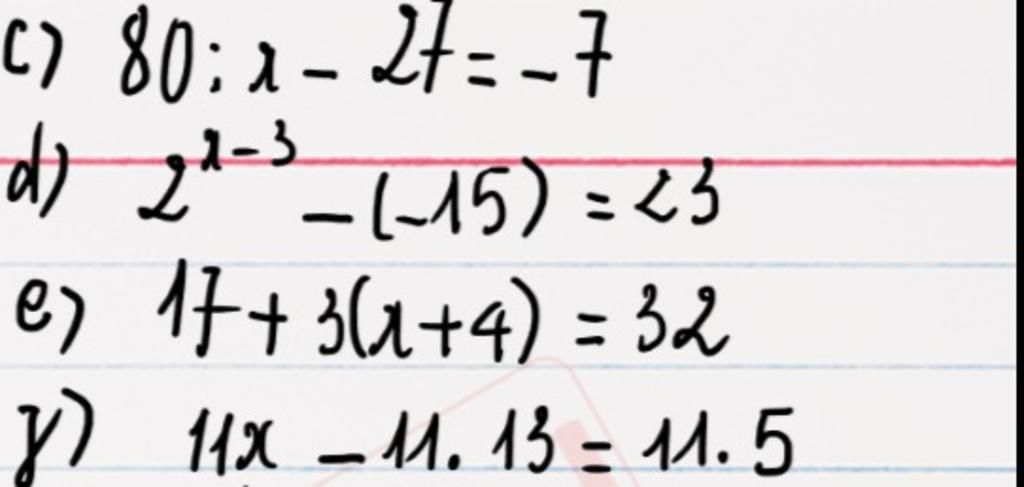 c) 80 : x - 27 = - 7
d) 2^{x-3} - (-15) = 23
e) 17 + 3(x+4) = 32
y) 11x - 11 . 13 = 11 . 5